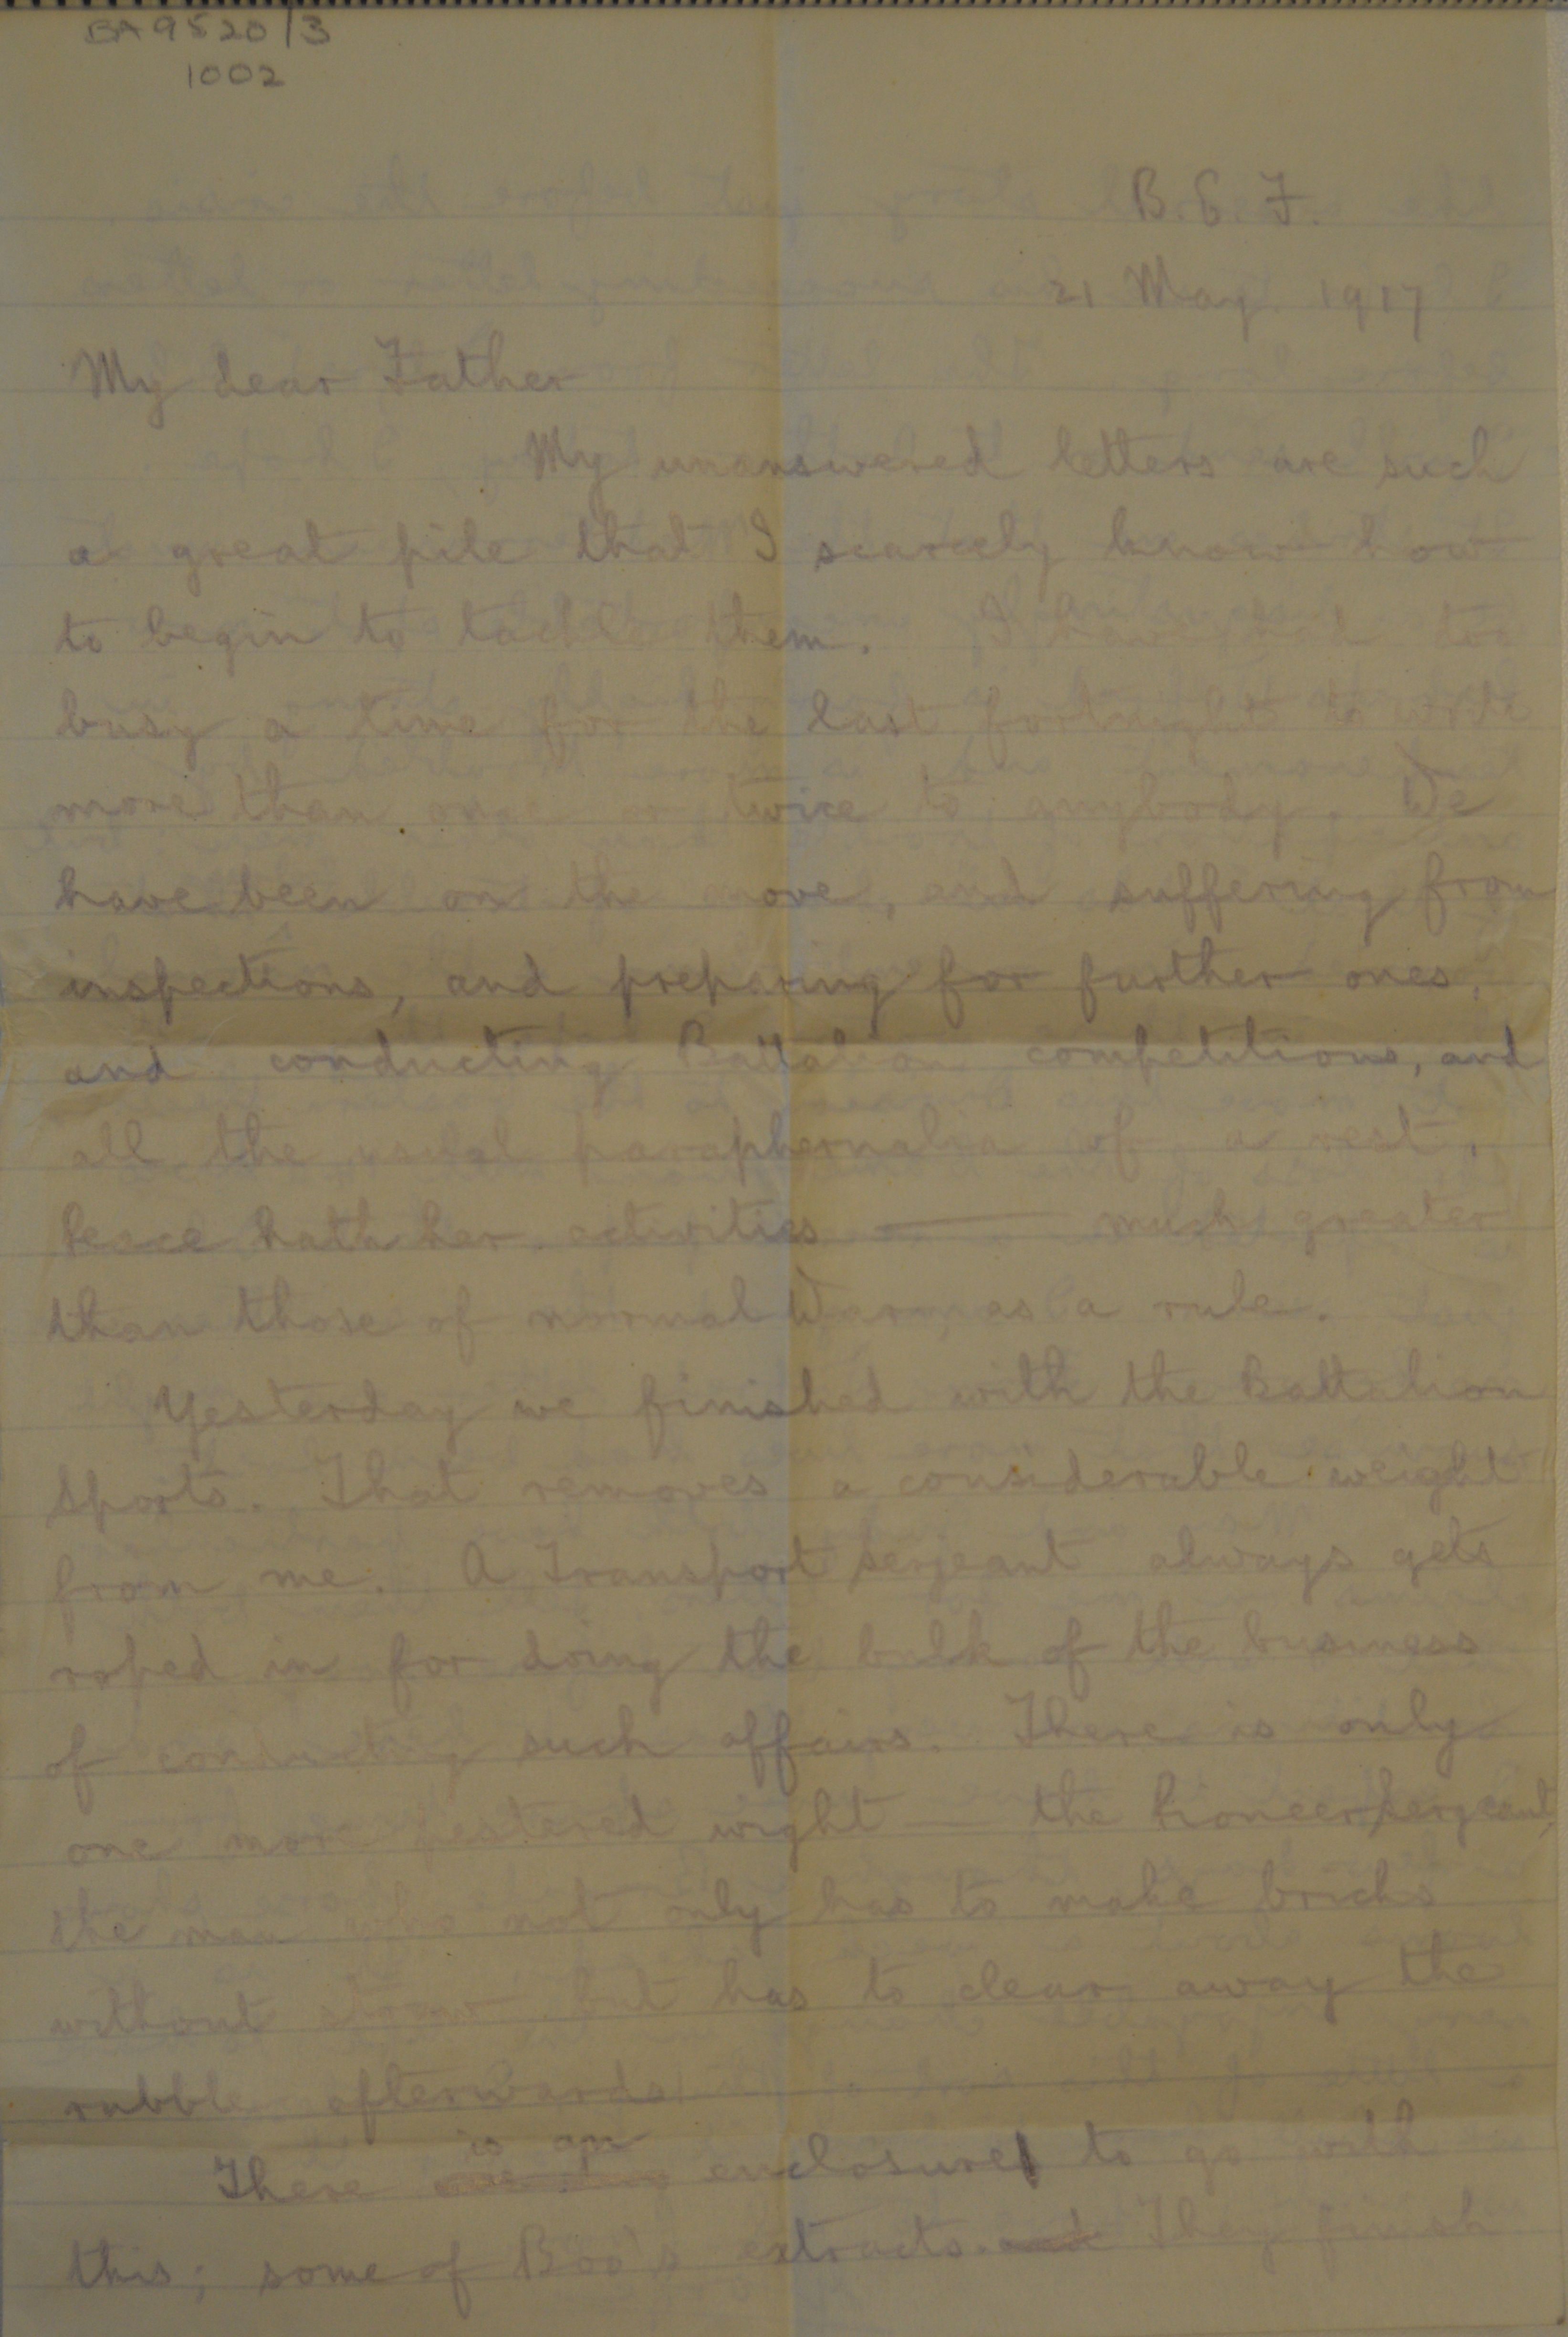 BA 9520/3
1002
B. E. F.
21 May 1917
My dear Father
My unanswered letters are such
a great pile that I scarcely know how
to begin to tackle them. I have had too
busy a time for the last fortnight to write
more than once or twice to anybody. We
have been on the move, and suffering from
inspections, and preparing for further ones,
and conducting Battalion competitions, and
all the usual paraphernalia of a rest.
Peace hath her activities — much greater
than those of normal War, as a rule.
Yesterday we finished with the Battalion
Sports. That removes a considerable weight
from me. A Transport Serjeant always gets
roped in for doing the bulk of the business
of conducting such affairs. There is only
one more pestered wight — the Pioneer Serjeant,
the man who not only has to make bricks
without straw but has to clear away the
rubble afterwards.
is an
There enclosure to go with
this; some of Boo's extracts. and They finish